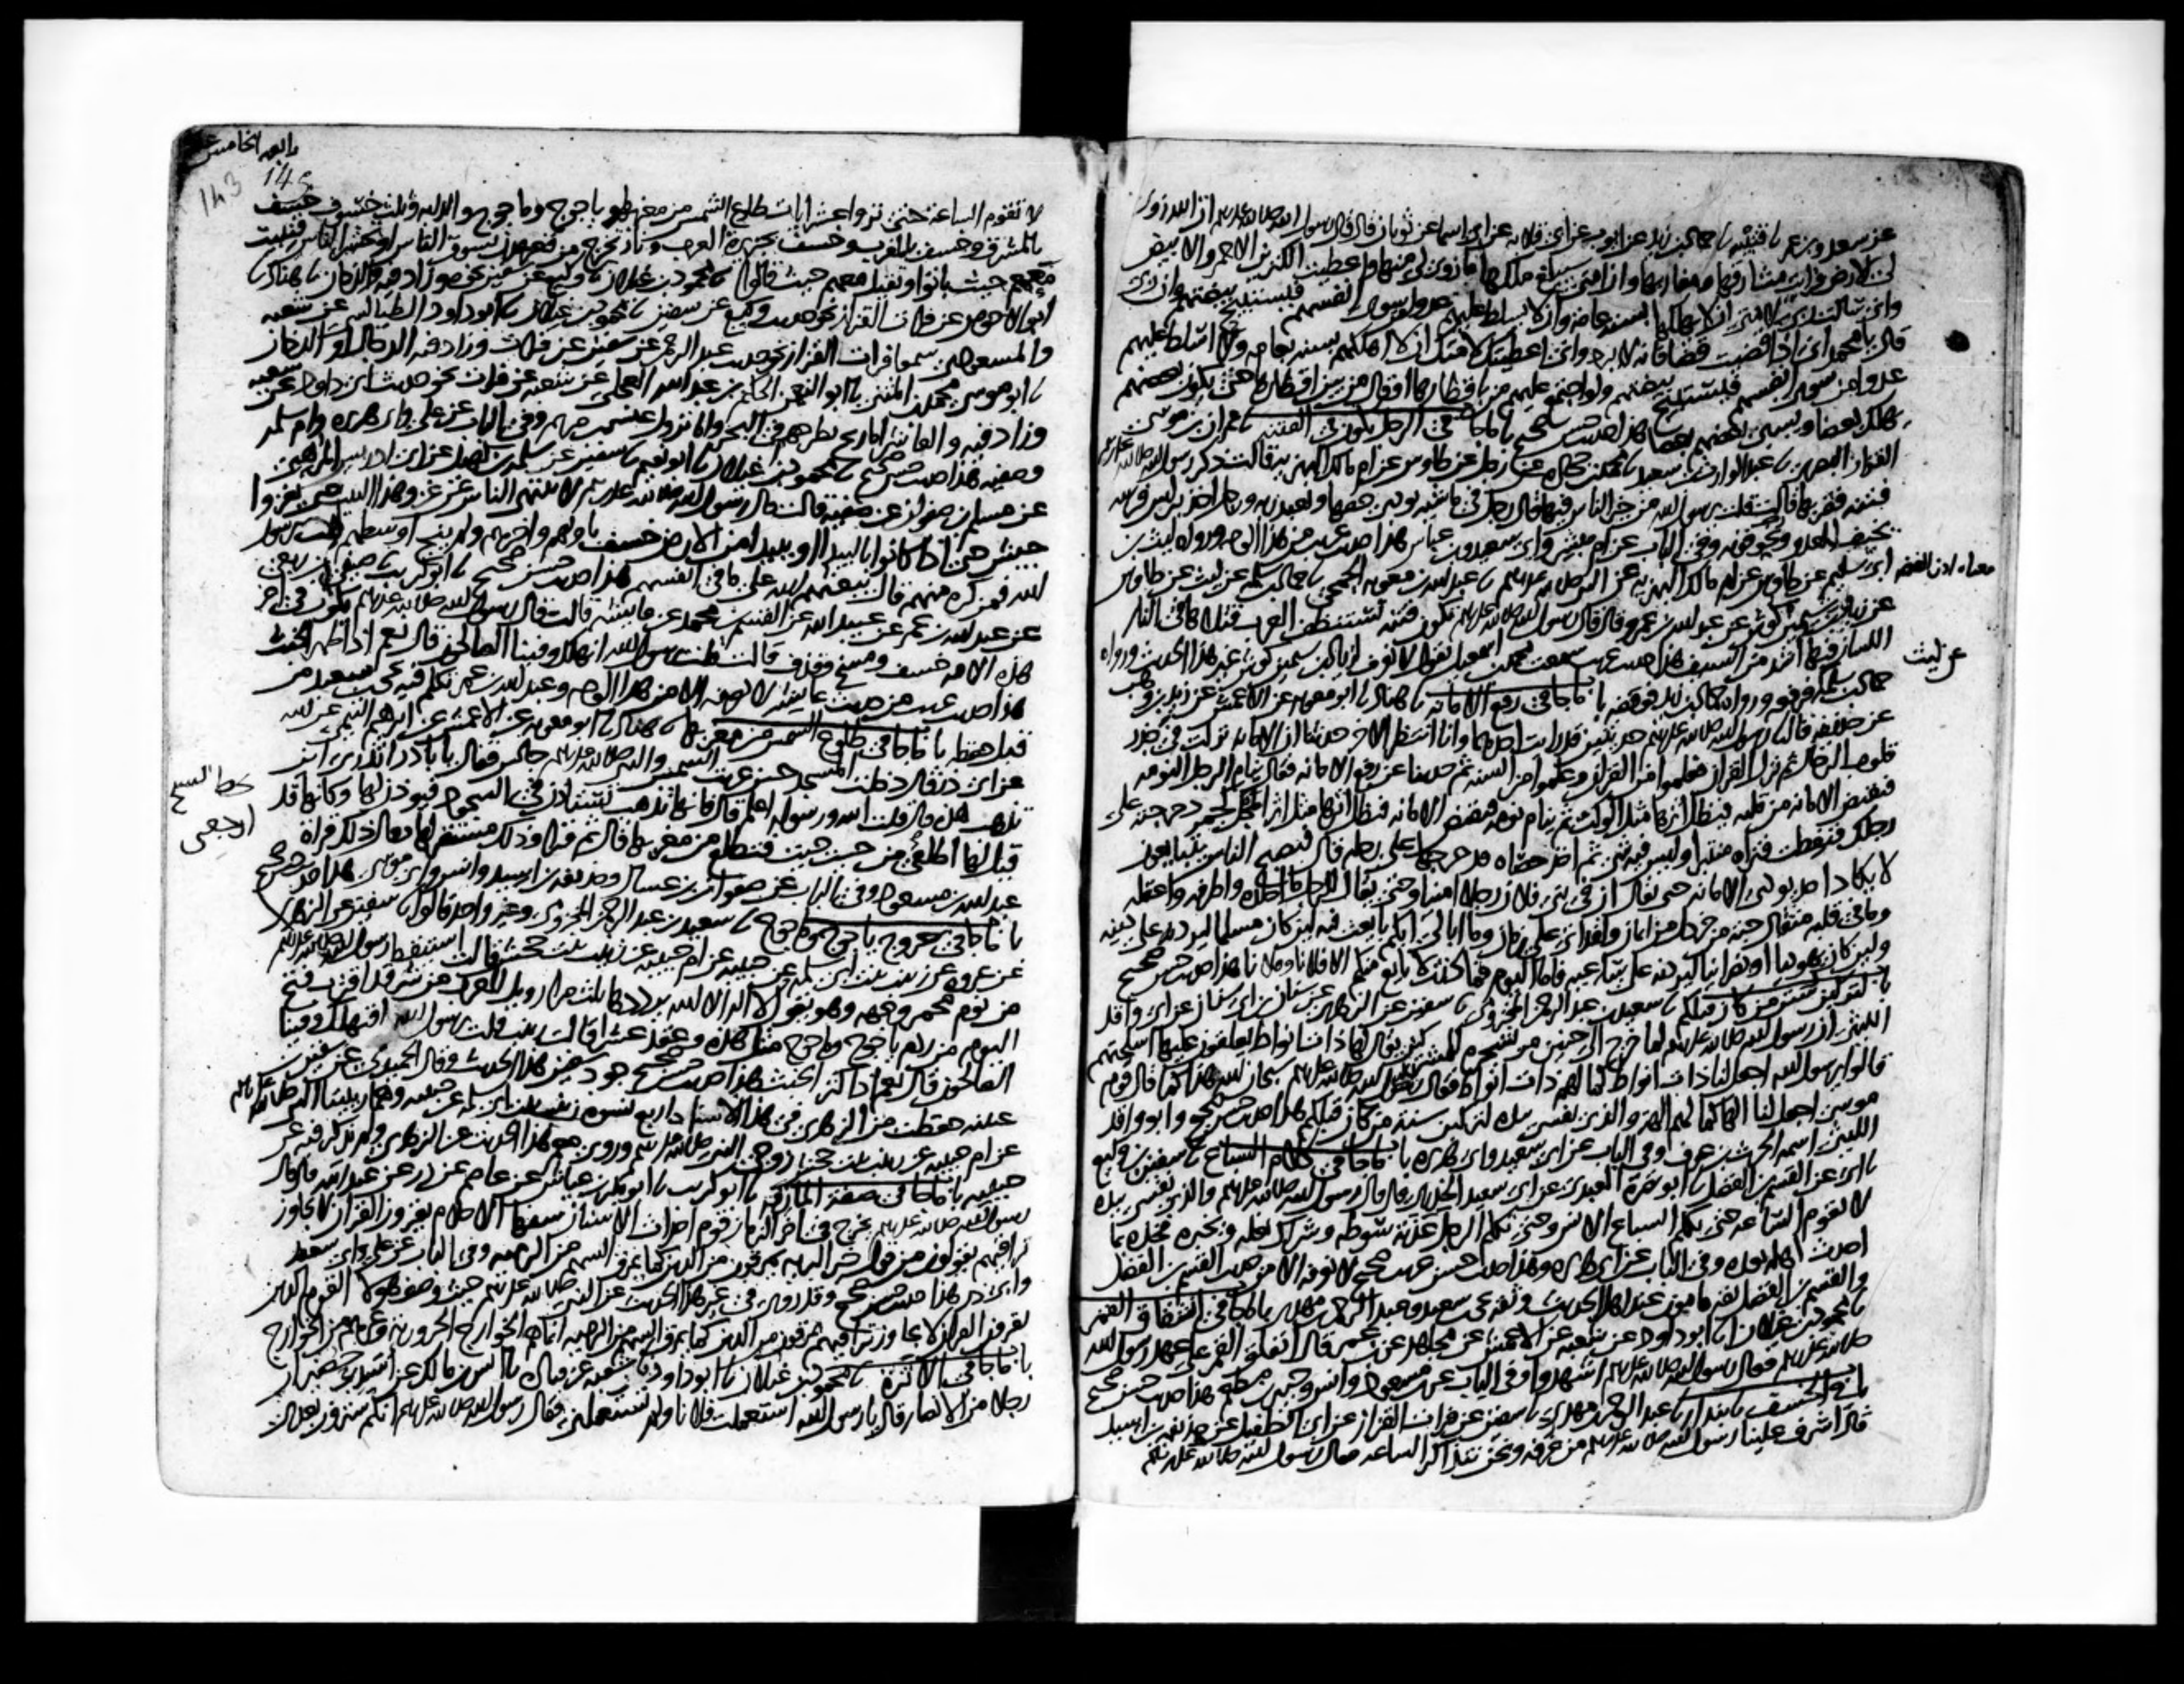 عن سعد وبن عمر نا قتيبه نا حماد بن زيد عن ايوب عن ابي قلابه عن ابي اسما عن ثوبان قال قال رسول الله صلى الله عليه وسلم ان الله زوى
لي الارض فرايت مشارقها ومغاربها وان امتي سيبلغ ملكها ما زوى لي منها واعطيت الكنزين الاحمر والابيض
واني سالت ربي لامتي ان لا يهلكها بسنه عامه وان لا يسلط عليهم عدوا من سوى انفسهم فيستبيح بيضتهم وان ربي
قال يا محمد اني اذا قضيت قضا فانه لا يرد واني اعطيتك لامتك ان لا اهلكهم بسنه عامه ولا اسلط عليهم
عدوا من سوى انفسهم فيستبيح بيضتهم ولو اجتمع عليهم من باقطارها او قال من بين اقطارها حتى يكون بعضهم
يهلك بعضا ويسبي بعضهم بعضا هذا حديث حسن صحيح باب ما جا في الرجل يكون في الفتنه نا عمران بن موسى
القزاز البصري نا عبد الوارث بن سعيد نا محمد بن جحاده عن رجل عن طاوس عن ام مالك البهزيه قالت ذكر رسول الله صلى الله عليه وسلم
فتنه فقربها قالت قلت يرسول الله من خير الناس فيها قال رجل في ماشيته يودي حقها ويعبد ربه ورجل اخذ براس فرسه
يخيف العدو ويخوفونه وفي الباب عن ام مبشر وابي سعيد وبن عباس هذا حديث غريب من هذا الوجه ورواه ليث بن
ابي سليم عن طاوس عن ام مالك البهزيه عن النبي صلى الله عليه وسلم نا عبد الله بن معويه الجمحي نا حماد بن سلمه عن ليث عن طاوس
عن زياد بن سيمين كوش عن عبد الله بن عمرو قال قال رسول الله صلى الله عليه وسلم تكون فتنه تستنظف العرب قتلاها في النار
اللسان فيها اشد من السيف هذا حديث غريب سمعت محمد بن اسمعيل يقول لا نعرف لزياد بن سيمين كوش غير هذا الحديث ورواه
عن ليث
حماد بن سلمه فرفعه ورواه حماد بن زيد فوقفه باب ما جا في رفع الامانه نا هناد نا ابو معويه عن الاعمش عن زيد بن وهب
عن حذيفه قال نا رسول الله صلى الله عليه وسلم حديثين قد رايت احدهما وانا انتظر الاخر حدثنا ان الامانه نزلت في جذر
قلوب الرجال ثم نزل القران فعلموا من القران وعلموا من السنه ثم حدثنا عن رفع الامانه فقال ينام الرجل النومه
فتقبض الامانه من قلبه فيظل اثرها مثل الوكت ثم ينام نومه فتقبض الامانه فيظل اثرها مثل اثر المجل كجمر دحرجته على
رجلك فنفطت فتراه منتبرا وليس فيه شي ثم اخذ حصاه فدحرجها على رجله قال فيصبح الناس يتبايعون
لا يكاد احد يودي الامانه حتى يقال ان في بني فلان رجلا امينا وحتى يقال للرجل ما اجلده واظرفه واعقله
وما في قلبه مثقال حبه من خردل من ايمان ولقد اتى علي زمان وما ابالي ايكم بايعت فيه لين كان مسلما ليردنه علي دينه
ولين كان يهوديا او نصرانيا ليردنه علي ساعيه فاما اليوم فما كنت لابايع منكم الا فلانا وفلانا هذا حديث حسن صحيح
باب لتركبن سنن من كان قبلكم نا سعيد بن عبد الرحمن المخزومي نا سفين عن الزهري عن سنان بن ابي سنان عن ابي واقد
الليثي ان رسول الله صلى الله عليه وسلم لما خرج الى حنين مر بشجره للمشركين يقال لها ذات انواط يعلقون عليها اسلحتهم
قالوا يرسول الله اجعل لنا ذات انواط كما لهم ذات انواط فقال النبي صلى الله عليه وسلم سبحان الله هذا كما قال قوم
موسى اجعل لنا الها كما لهم الهه والذي نفسي بيده لتركبن سنه من كان قبلكم هذا حديث حسن صحيح وابو واقد
الليثي اسمه الحرث بن عوف وفي الباب عن ابي سعيد وابي هريره باب ما جا في كلام السباع نا سفين بن وكيع
نا ابي عن القسم بن الفضل نا ابو نضره العبدي عن ابي سعيد الخدري قال قال رسول الله صلى الله عليه وسلم والذي نفسي بيده
لا تقوم الساعه حتى تكلم السباع الانس وحتى تكلم الرجل عذبه سوطه وشراك نعله وتخبره فخذه بما
احدث اهله بعده وفي الباب عن ابي هريره وهذا حديث حسن غريب صحيح لا نعرفه الا من حديث القسم بن الفضل
والقسم بن الفضل ثقه مامون عند اهل الحديث وثقه يحيى بن سعيد وعبد الرحمن بن مهدي باب ما جا في انشقاق القمر
نا محمود بن غيلان نا ابو داود عن شعبه عن الاعمش عن مجاهد عن بن عمر قال انفلق القمر على عهد رسول الله
صلى الله عليه وسلم فقال رسول الله صلى الله عليه وسلم اشهدوا وفي الباب عن بن مسعود وانس وجبير بن مطعم هذا حديث حسن صحيح
باب في الخسف نا بندار نا عبد الرحمن بن مهدي نا سفين عن فرات القزاز عن ابي الطفيل عن حذيفه بن اسيد
قال اشرف علينا رسول الله صلى الله عليه وسلم من غرفه ونحن نتذاكر الساعه فقال رسول الله صلى الله عليه وسلم
143
لا تقوم الساعه حتى تروا عشر ايات طلوع الشمس من مغربها وياجوج وماجوج والدابه وثلث خسوف خسف
بالمشرق وخسف بالمغرب وخسف بجزيره العرب ونار تخرج من قعر عدن تسوق الناس او تحشر الناس فتبيت
معهم حيث باتوا وتقيل معهم حيث قالوا نا محمود بن غيلان نا وكيع عن سفين نحوه وزاد فيه والدخان نا هناد نا
ابو الاحوص عن فرات القزاز نحو حديث وكيع عن سفين نا محمود بن غيلان نا ابو داود الطيالسي عن شعبه
والمسعودي سمعا فرات القزاز نحو حديث عبد الرحمن عن سفين عن فرات وزاد فيه الدجال او الدخان
نا ابو موسى محمد بن المثنى نا ابو النعمن الحكم بن عبد الله العجلي عن شعبه عن فرات نحو حديث ابي داود عن شعبه
وزاد فيه والعاشره اما ريح تطرحهم في البحر واما نزول عيسى بن مريم وفي الباب عن علي وابي هريره وام سلمه
وصفيه هذا حديث حسن صحيح نا محمود بن غيلان نا ابو نعيم نا سفين عن سلمه بن كهيل عن ابي ادريس المرهبي
عن مسلم بن صفوان عن صفيه قالت قال رسول الله صلى الله عليه وسلم لا ينتهي الناس عن غزو هذا البيت حتى يغزوا
جيش حتى اذا كانوا بالبيدا او ببيدا من الارض خسف باولهم واخرهم ولم ينج اوسطهم قلت يرسول
الله فمن كره منهم قال يبعثهم الله على ما في انفسهم هذا حديث حسن صحيح نا ابو كريب نا صيفي بن ربعي
عن عبد الله بن عمر عن عبيد الله عن القسم بن محمد عن عايشه قالت قال رسول الله صلى الله عليه وسلم يكون في اخر
هذه الامه خسف ومسخ وقذف قالت قلت يرسول الله انهلك وفينا الصالحون قال نعم اذا ظهر الخبث
هذا حديث غريب من حديث عايشه لا نعرفه الا من هذا الوجه وعبد الله بن عمر تكلم فيه يحيى بن سعيد من
قبل حفظه باب ما جا في طلوع الشمس من مغربها نا هناد نا ابو معويه عن الاعمش عن ابرهيم التيمي عن ابيه
عن ابي ذر قال دخلت المسجد حين غربت الشمس والنبي صلى الله عليه وسلم جالس فقال يا باذر اتدري اين
تذهب هذه قال قلت الله ورسوله اعلم قال فانها تذهب تستاذن في السجود فيوذن لها وكانها قد
قيل لها اطلعي من حيث جيت فتطلع من مغربها قال ثم قرا وذلك مستقر لها قال وذلك قراه
عبد الله بن مسعود وفي الباب عن صفوان بن عسال وحذيفه بن اسيد وانس وابي موسى هذا حديث حسن صحيح
باب ما جا في خروج ياجوج وماجوج نا سعيد بن عبد الرحمن المخزومي وغير واحد قالوا نا سفين عن الزهري
عن عروه عن زينب بنت ابي سلمه عن حبيبه عن ام حبيبه عن زينب بنت جحش قالت استيقظ رسول الله صلى الله عليه وسلم
من نوم محمر وجهه وهو يقول لا اله الا الله يرددها ثلث مرات ويل للعرب من شر قد اقترب فتح
اليوم من ردم ياجوج وماجوج مثل هذه وعقد عشرا قالت زينب قلت يرسول الله افنهلك وفينا
الصالحون قال نعم اذا كثر الخبث هذا حديث حسن صحيح جود سفين هذا الحديث وقال الحميدي عن سفين بن
عيينه حفظت من الزهري في هذا الاسناد اربع نسوه زينب بنت ابي سلمه عن حبيبه وهما ربيبتا النبي صلى الله عليه وسلم
عن ام حبيبه عن زينب بنت جحش زوجي النبي صلى الله عليه وسلم وروى معمر هذا الحديث عن الزهري ولم يذكر فيه عن
حبيبه باب ما جا في صفه المارقه نا ابو كريب نا ابو بكر بن عياش عن عاصم عن زر عن عبد الله قال قال
رسول الله صلى الله عليه وسلم يخرج في اخر الزمان قوم احداث الاسنان سفها الاحلام يقرون القران لا يجاوز
تراقيهم يقولون من قول خير البريه يمرقون من الدين كما يمرق السهم من الرميه وفي الباب عن علي وابي سعيد
وابي ذر هذا حديث حسن صحيح وقد روي في غير هذا الحديث عن النبي صلى الله عليه وسلم حيث وصف هولا القوم الذين
يقرون القران لا يجاوز تراقيهم يمرقون من الدين كما يمرق السهم من الرميه انما هم الخوارج الحروريه وغيرهم من الخوارج
باب ما جا في الاثره نا محمود بن غيلان نا ابو داود نا شعبه عن قتاده نا انس بن مالك عن اسيد بن حضير ان
رجلا من الانصار قال يا رسول الله استعملت فلانا ولم تستعملني فقال رسول الله صلى الله عليه وسلم انكم سترون بعدي